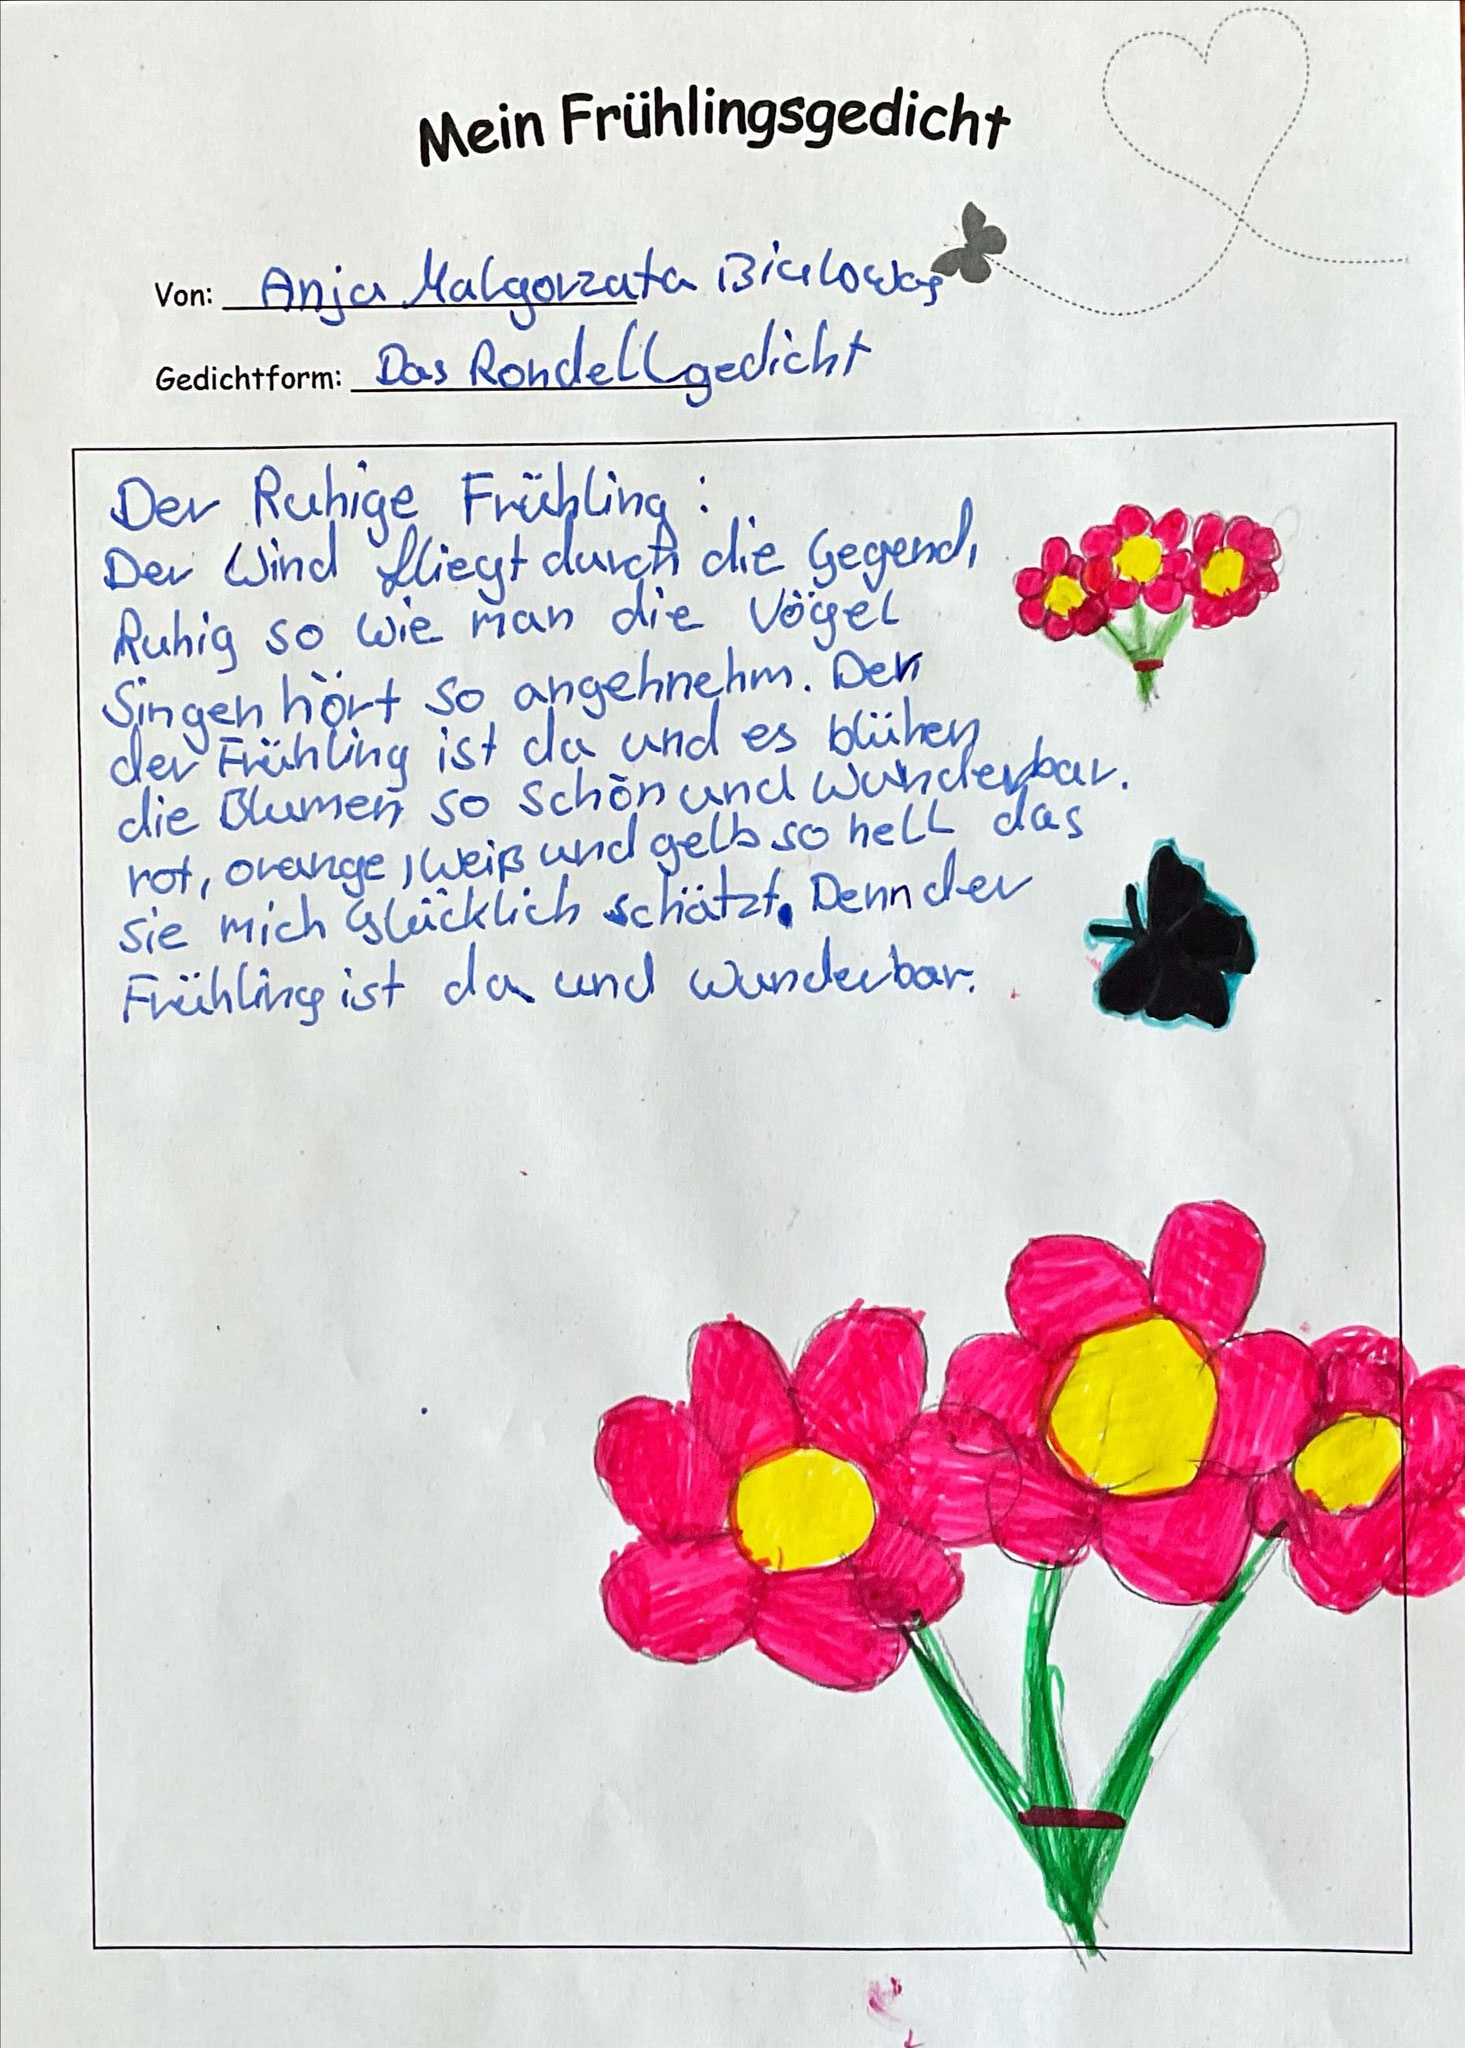 Mein Frühlingsgedicht
Von: Anja Malgorzata
Gedichtform: Das Rondellgedicht
Der Ruhige Frühling:
Der Wind fliegt durch die Gegend,
Ruhig so wie man die Vögel
Singen hört so angehnehm. Den
der Frühling ist da und es blühen
die Blumen so schön und wunderbar.
rot, orange, weiß und gelb so hell das
sie mich Glücklich schätzt. Denn der
Frühling ist da und wunderbar.